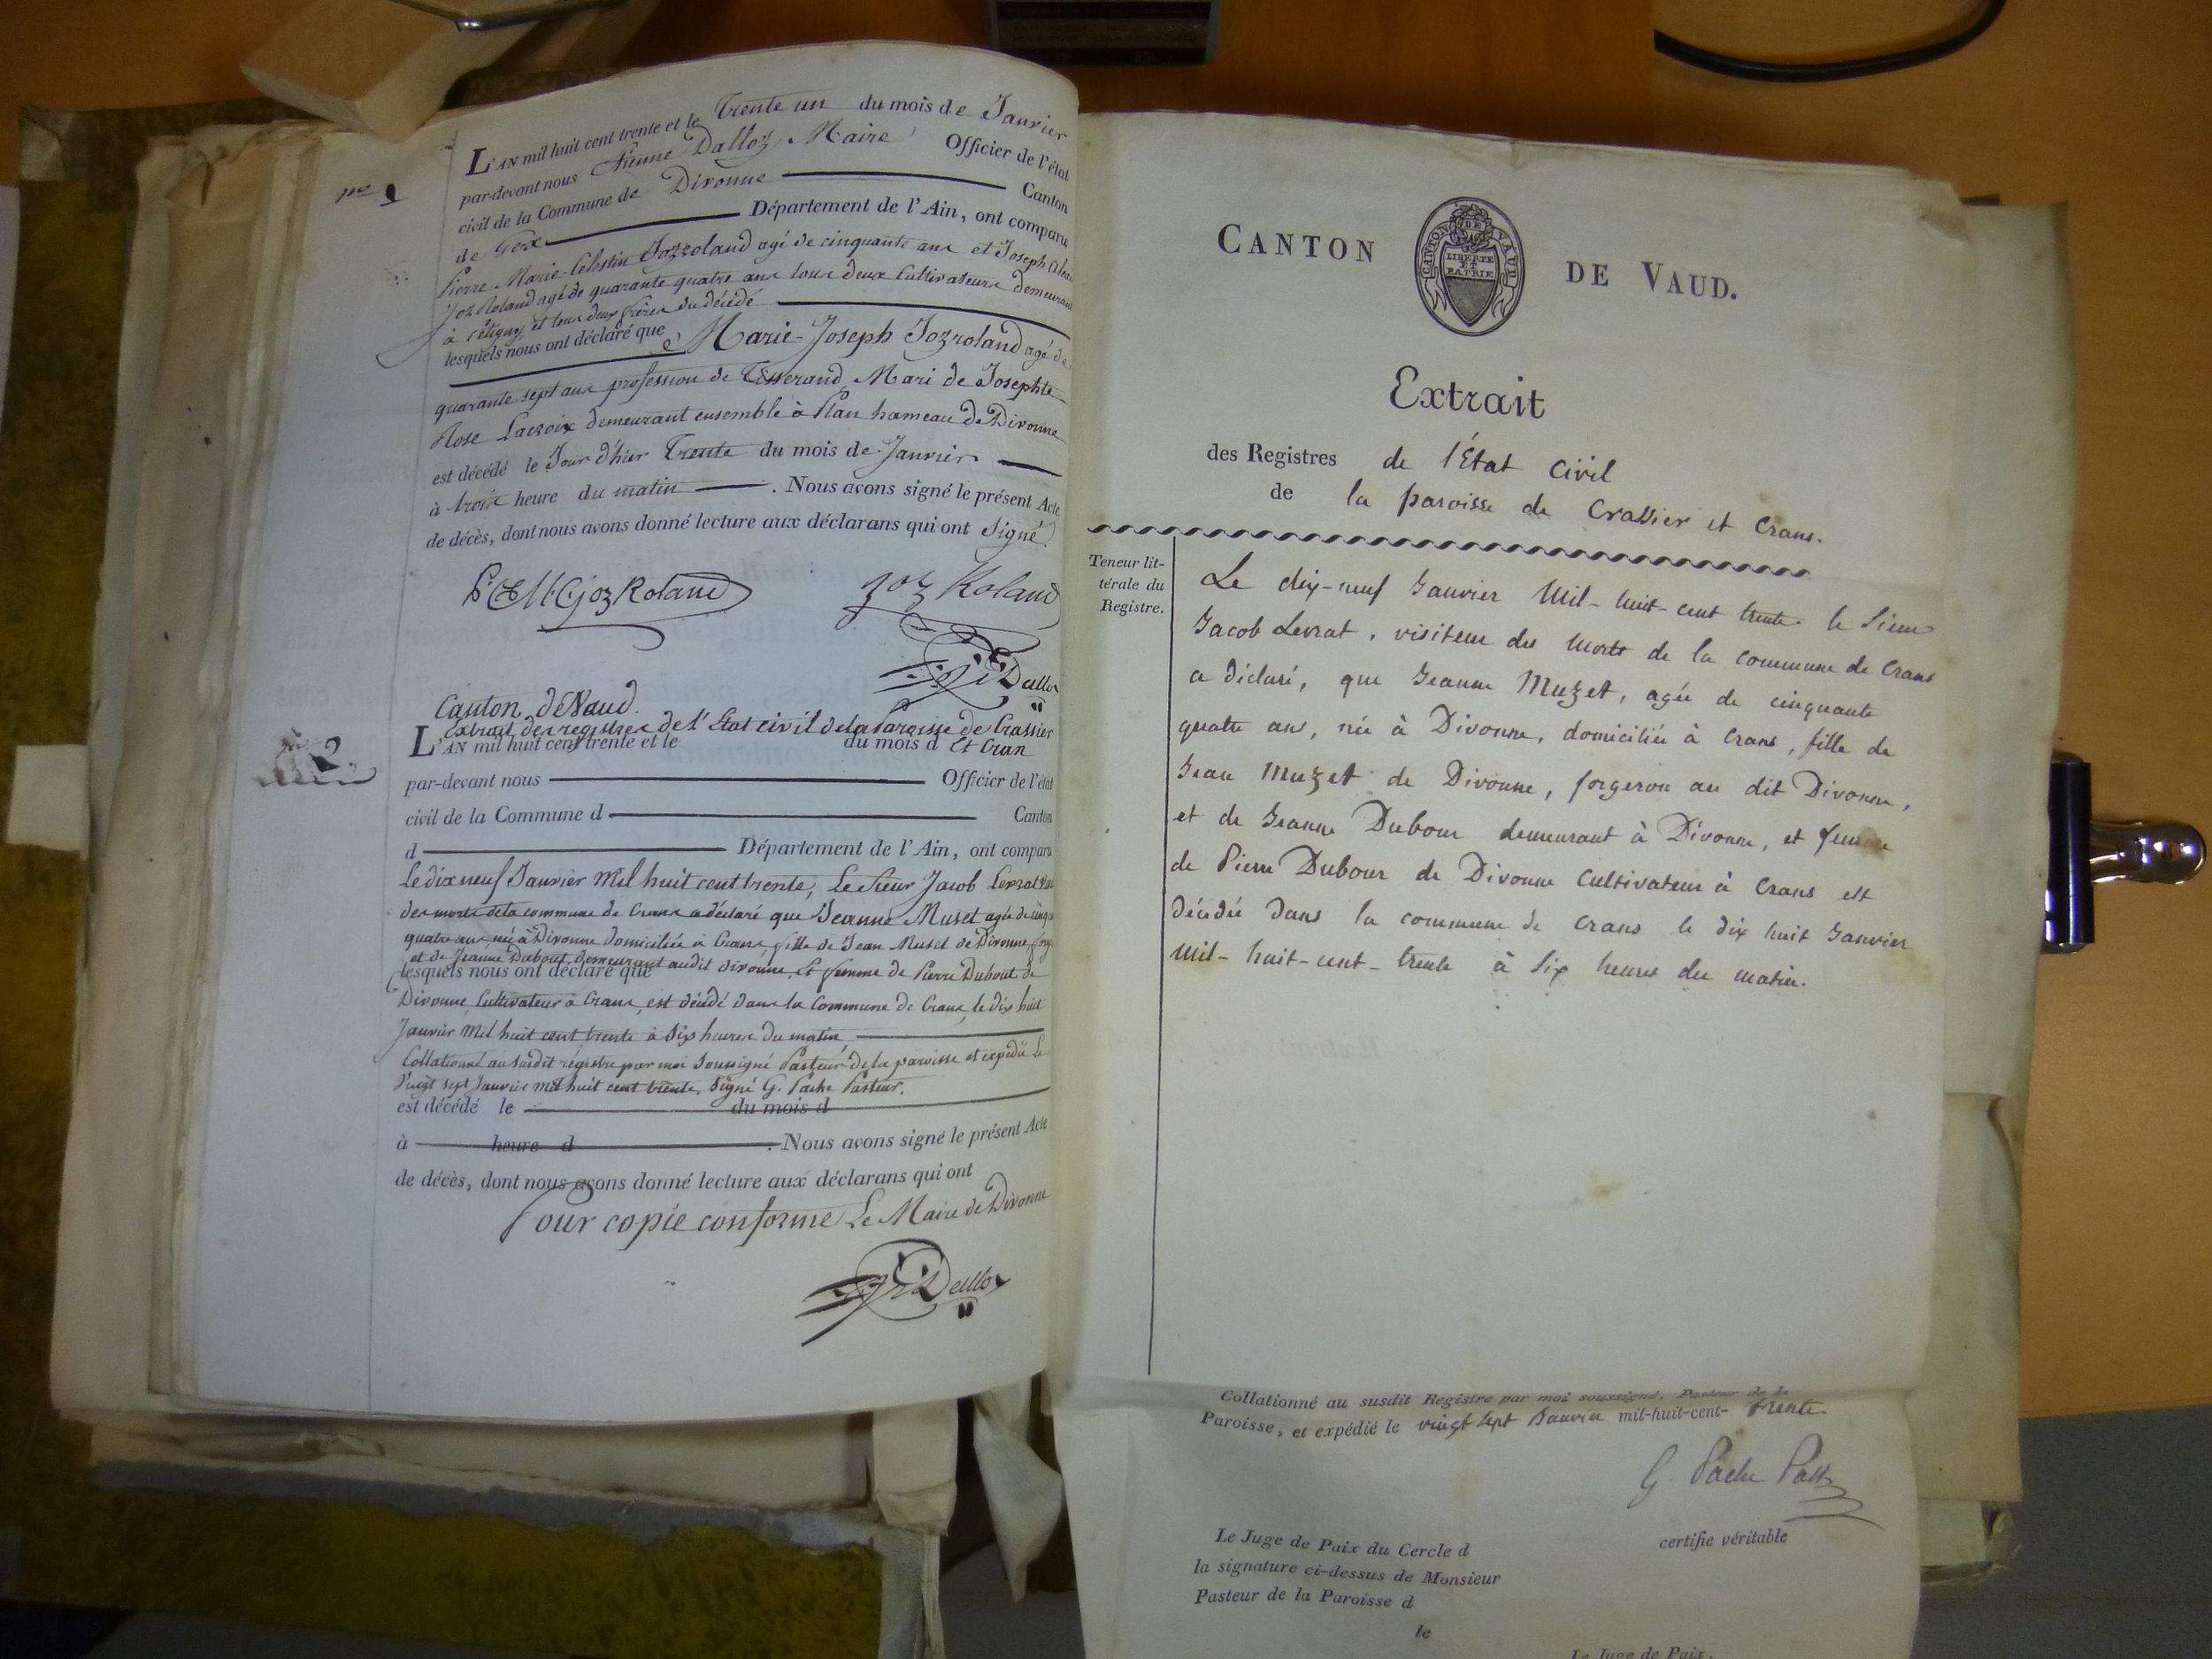 L'AN mil huit cent trente et le Trente un du mois de Janvier
par-devant nous Dalloz Maire Officier de l'état
civil de la Commune de Divonne Canton
de Gex Département de l'Ain, ont comparu
Pierre Marie Célestin Jozroland agé de cinquante ans et Joseph
Joz Roland agé de quarante quatre ans tous deux Cultivateurs demeurant
à et tous deux frères du décédé
lesquels nous ont déclaré que Marie-Joseph Jozroland agé de
quarante sept ans profession de Tisserand, Mari de Josephte
Rose Lacroix demeurant ensemble à Plan hameau de Divonne
est décédé le Jour d'hier Trente du mois de Janvier
à trois heure du matin . Nous avons signé le présent Acte
de décès, dont nous avons donné lecture aux déclarans qui ont Signé.
joz Roland joz Roland
Dalloz
2
Canton de Vaud.
Extrait des registres de l'Etat civil de la Paroisse de Crassier
L'AN mil huit cent trente et le du mois d et Cran
par-devant nous Officier de l'état
civil de la Commune d Canton
d Département de l'Ain, ont comparu
Le dix neuf Janvier mil huit cent trente, Le Sieur Jacob Levrat
des morts de la commune de Crans a déclaré que Jeanne Muset agée de
quatre ans, née à Divonne Domiciliée à Crans, fille de Jean Muset de Divonne
et de Jeanne Dubout Demeurant audit Divonne, et femme de Pierre Dubout de
lesquels nous ont déclaré que
Divonne, Cultivateur à Crans, est décédé dans la Commune de Crans, le dix huit
Janvier mil huit cent trente à six heures du matin,
Collationné au susdit régistre par moi soussigné Pasteur de la paroisse et expédié le
Vingt sept Janvier mil huit cent trente, Signé G. Pache Pasteur.
est décédé le du mois d
à heure d . Nous avons signé le présent Acte
de décès, dont nous avons donné lecture aux déclarans qui ont
Pour copie conforme Le Maire de Divonne
Dalloz
CANTON DE VAUD.
CANTON DE VAUD
LIBERTE
ET
PATRIE
Extrait
des Registres de l'État Civil
de la paroisse de Crassier et Crans.
Teneur lit-
térale du
Registre.
Le dix-neuf Janvier Mil-huit-cent trente le Sieur
Jacob Levrat, visiteur des morts de la commune de Crans
a déclaré, que Jeanne Muzet, agée de cinquante
quatre ans, née à Divonne, domiciliée à Crans, fille de
Jean Muzet de Divonne, forgeron au dit Divonne,
et de Jeanne Dubour demeurant à Divonne, et femme
de Pierre Dubour de Divonne Cultivateur à Crans est
décédée dans la commune de Crans le dix huit Janvier
Mil-huit-cent-trente à Six heures du matin.
Collationné au susdit Registre par moi soussigné, Pasteur de la
Paroisse, et expédié le vingt sept Janvier mil-huit-cent- trente
G. Pache Past
Le Juge de Paix du Cercle d certifie véritable
la signature ci-dessus de Monsieur
Pasteur de la Paroisse d
le
Le Juge de Paix,